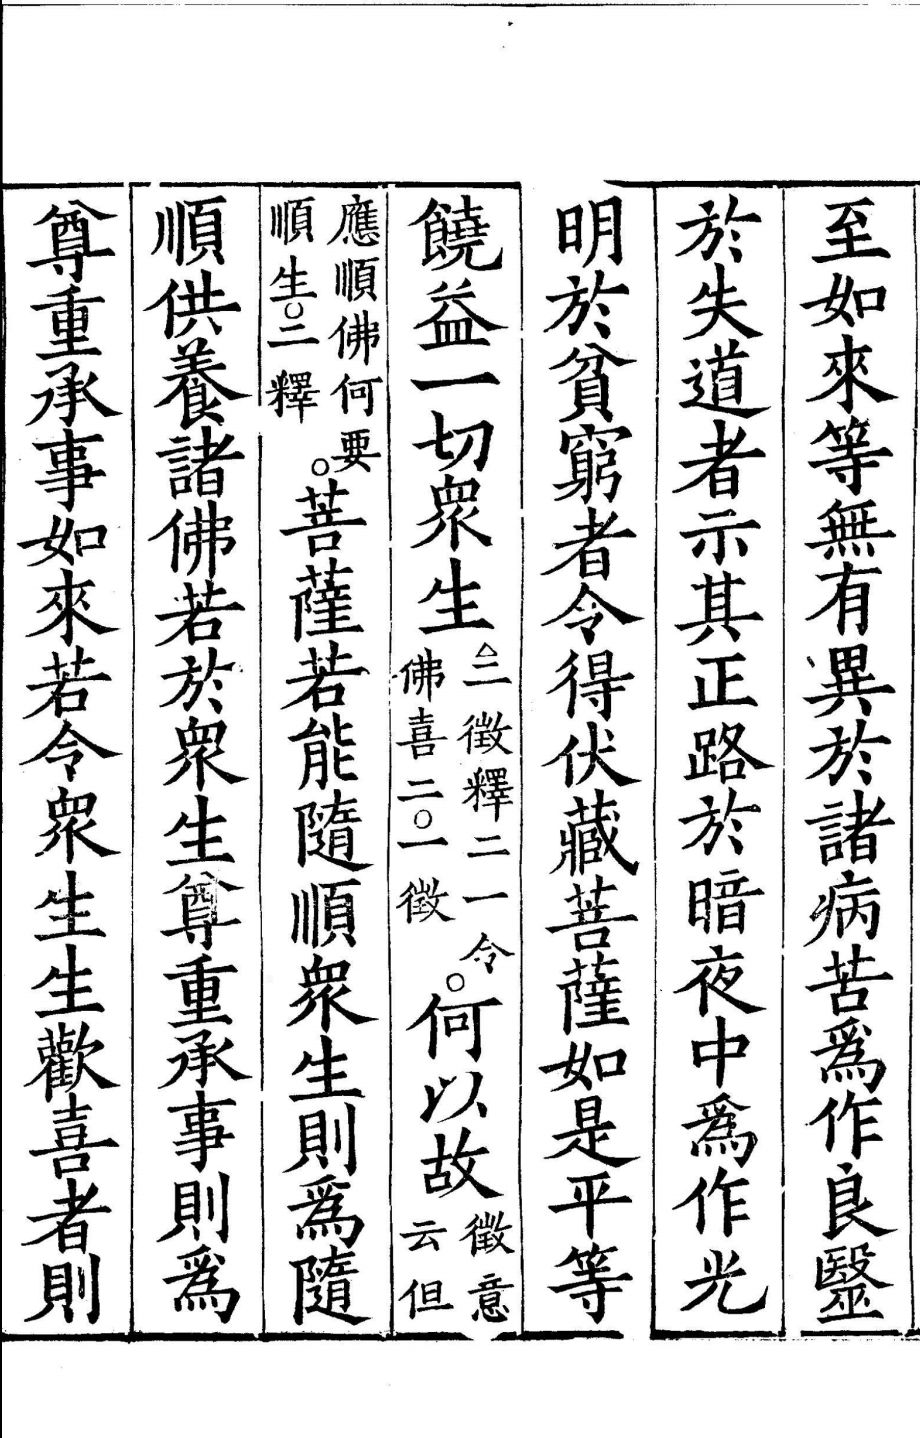 至如來等無有異於諸病苦爲作良毉
於失道者示其正路於暗夜中爲作光
明於貧窮者令得伏藏菩薩如是平等
饒益一切衆生△三徵釋二一令佛喜二○一徵○何以故徵意云但
應順佛何要順生○二釋○菩薩若能隨順衆生則爲隨
順供養諸佛若於衆生尊重承事則爲
尊重承事如來若令衆生生歡喜者則